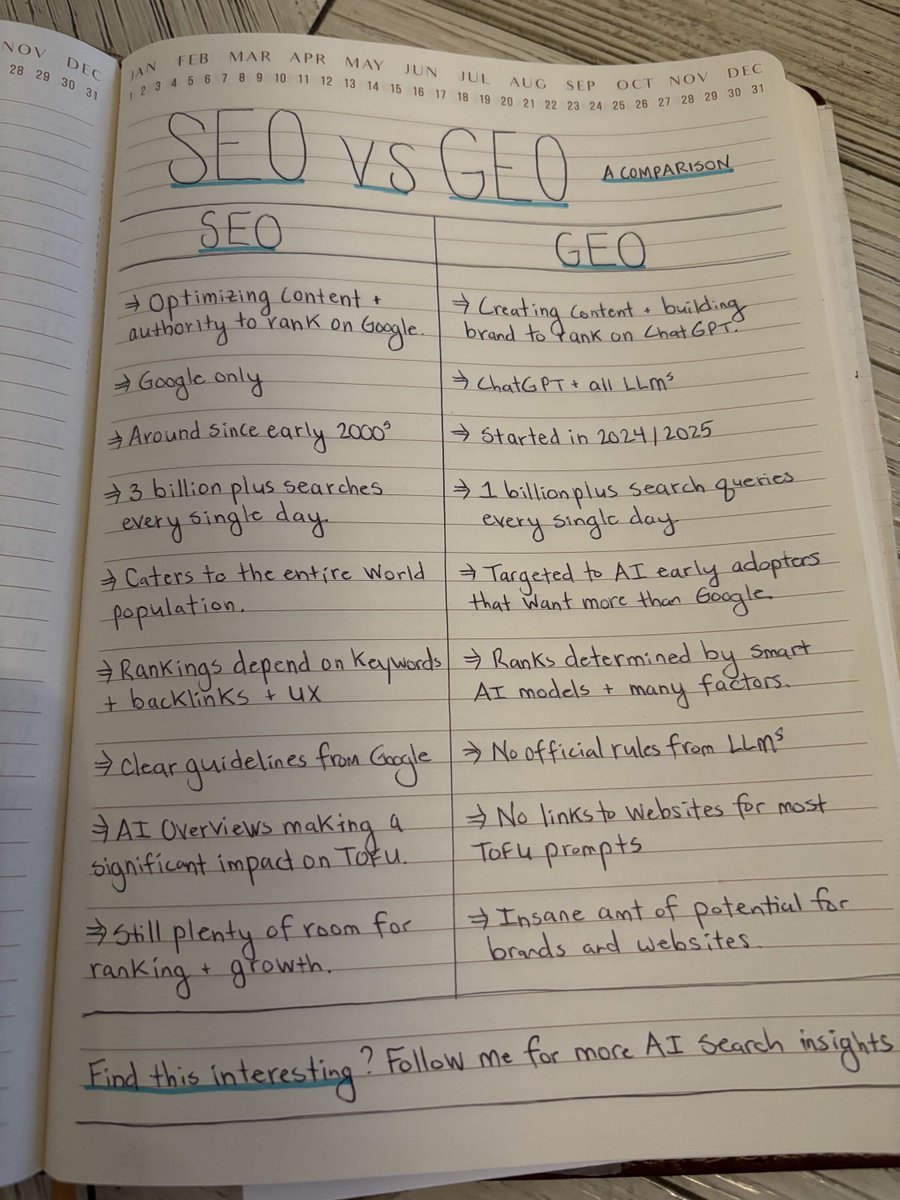 NOV DEC
28 29 30 31
JAN FEB MAR APR MAY JUN JUL AUG SEP OCT NOV DEC
1 2 3 4 5 6 7 8 9 10 11 12 13 14 15 16 17 18 19 20 21 22 23 24 25 26 27 28 29 30 31
SEO VS GEO A COMPARISON
SEO
⇒ Optimizing Content +
authority to rank on Google.
⇒ Google only
⇒ Around since early 2000s
⇒ 3 billion plus searches
every single day.
⇒ Caters to the entire World
population.
⇒ Rankings depend on Keywords
+ backlinks + UX
⇒ Clear guidelines from Google
⇒ AI Overviews making a
significant impact on TOFU.
⇒ Still plenty of room for
ranking + growth.
GEO
⇒ Creating Content + building
brand to rank on ChatGPT.
⇒ ChatGPT + all LLMs
⇒ Started in 2024/2025
⇒ 1 billion plus search queries
every single day
⇒ Targeted to AI early adopters
that want more than Google.
⇒ Ranks determined by smart
AI models + many factors.
⇒ No official rules from LLMs
⇒ No links to websites for most
TOFU prompts
⇒ Insane amt of potential for
brands and websites.
Find this interesting? Follow me for more AI Search insights